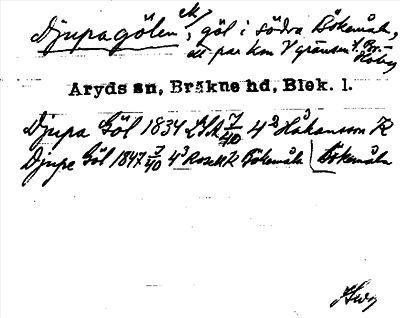 Djupagölen, göl i södra Bökemåla,
ett par km V gränsen t. Ro-
Aryds sn, Bräkne hd, Blek. l.
Djupa Göl 1834 LSA 7/40 4² Håkansson K
Djupe Göl 1847 7/40 4³ Rosell K Bökemåla Bökemåla